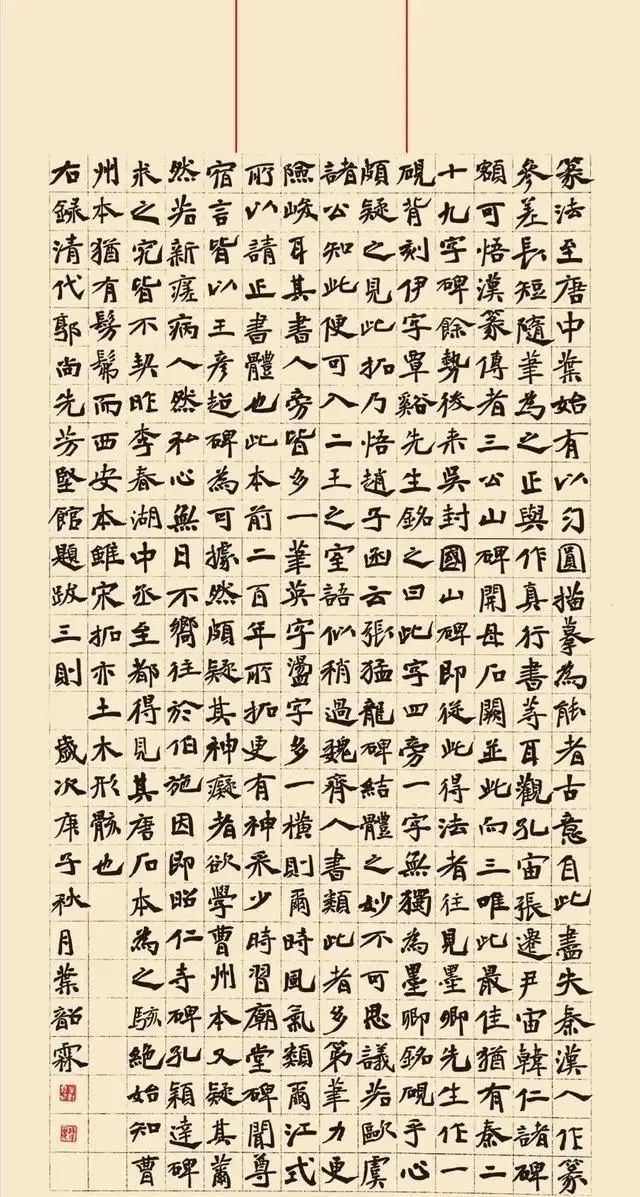 篆法至唐中葉始有以勻圓描摹為能者古意自此盡失秦漢人作篆
參差長短隨筆為之正與作真行書等耳觀孔宙張遷尹宙韓仁諸碑
額可悟漢篆傳者三公山碑開母石闕並此而三唯此最佳猶有秦二
十九字碑餘勢後來吳封國山碑即從此得法者往見墨卿先生作一
硯背刻伊字覃谿先生銘之曰此字四旁一字無獨為墨卿銘硯乎心
頗疑之見此拓乃悟趙子函云張猛龍碑結體之妙不可思議若歐虞
諸公知此便可入二王之室語似稍過魏齊人書類此者多第筆力更
險峻耳其書人旁皆多一筆英字盪字多一橫則爾時風氣類爾江式
所以請正書體也此本前二百年所拓更有神采少時習廟堂碑聞尊
宿言皆以王彥超碑為可據然頗疑其神癡者欲學曹州本又疑其蕭
然若新瘥病人然私心無日不嚮往於伯施因即昭仁寺碑孔穎達碑
求之究皆不契昨李春湖中丞至都得見其唐石本為之駭絕始知曹
州本猶有髣髴而西安本雖宋拓亦土木形骸也
右錄清代郭尚先芳堅館題跋三則 歲次庚子秋月葉韶霖